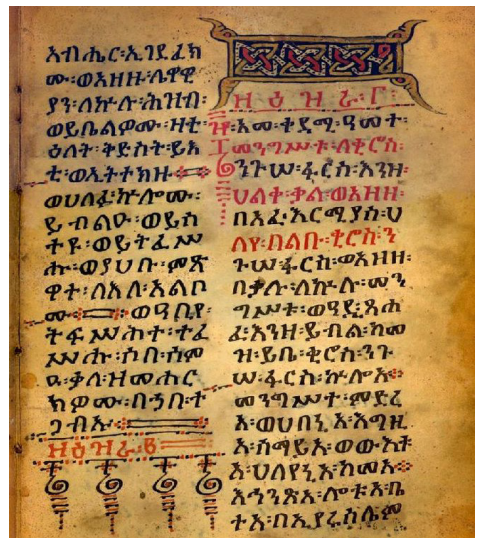 አብሔር፡ኢገደፈክ
ሙ፡ወአዘዙ፡ሌዋዊ
ያን፡ለኵሉ፡ሕዝብ፡
ወይቤልዎሙ፡ዛቲ፡
ዕለት፡ቅድስት፡ይእ
ቲ፡ወኢትተክዙ
ወሀለፉ፡ኵሎሙ፡
ይብልዑ፡ወይስ
ተዩ፡ወይትፈሥ
ሑ፡ወያሀቡ፡ምጽ
ዋተ፡ለእለ፡አልቦ
ሙ፡ወዓቢየ፡
ትፍሥሕተ፡ተፈ
ሥሑ፡ሶበ፡ሰም
ዑ፡ቃለ፡ዝመሐር
ክዎሙ፡በኀበ፡ተ
ጋብኡ
ዘዕዝራ፡
ዘዕዝራ፡፫፡
አመ፡ቀደሚ፡ዓመተ፡
መንግሥቱ፡ለቂሮስ፡
ንጉሠ፡ፋርስ፡እንዘ፡
ሀልቀ፡ቃል፡ወአዘዘ፡
በአፈ፡ኤርሚያስ፡ሀ
ለየ፡በልቡ፡ቂሮስ፡ን
ጉሠ፡ፋርስ፡ወአዘዘ፡
በቃሉ፡ለኵሉ፡መን
ግሥቱ፡ወዓዲ፡ጸሐ
ፈ፡እንዘ፡ይብል፡ከመ
ዝ፡ይቤ፡ቂሮስ፡ንጉ
ሠ፡ፋርስ፡ኵሎ፡አ
መንግሥተ፡ምድረ
አ፡ወሀበኒ፡አ፡እግዚ
አ፡ሰማይ፡አ፡ወውእቱ
አ፡ሀለየኒ፡አ፡ከመ፡አ
እሕንጽ፡አ፡ሎቱ፡አ፡ቤ
ተ፡አ፡በኢየሩሳሌም